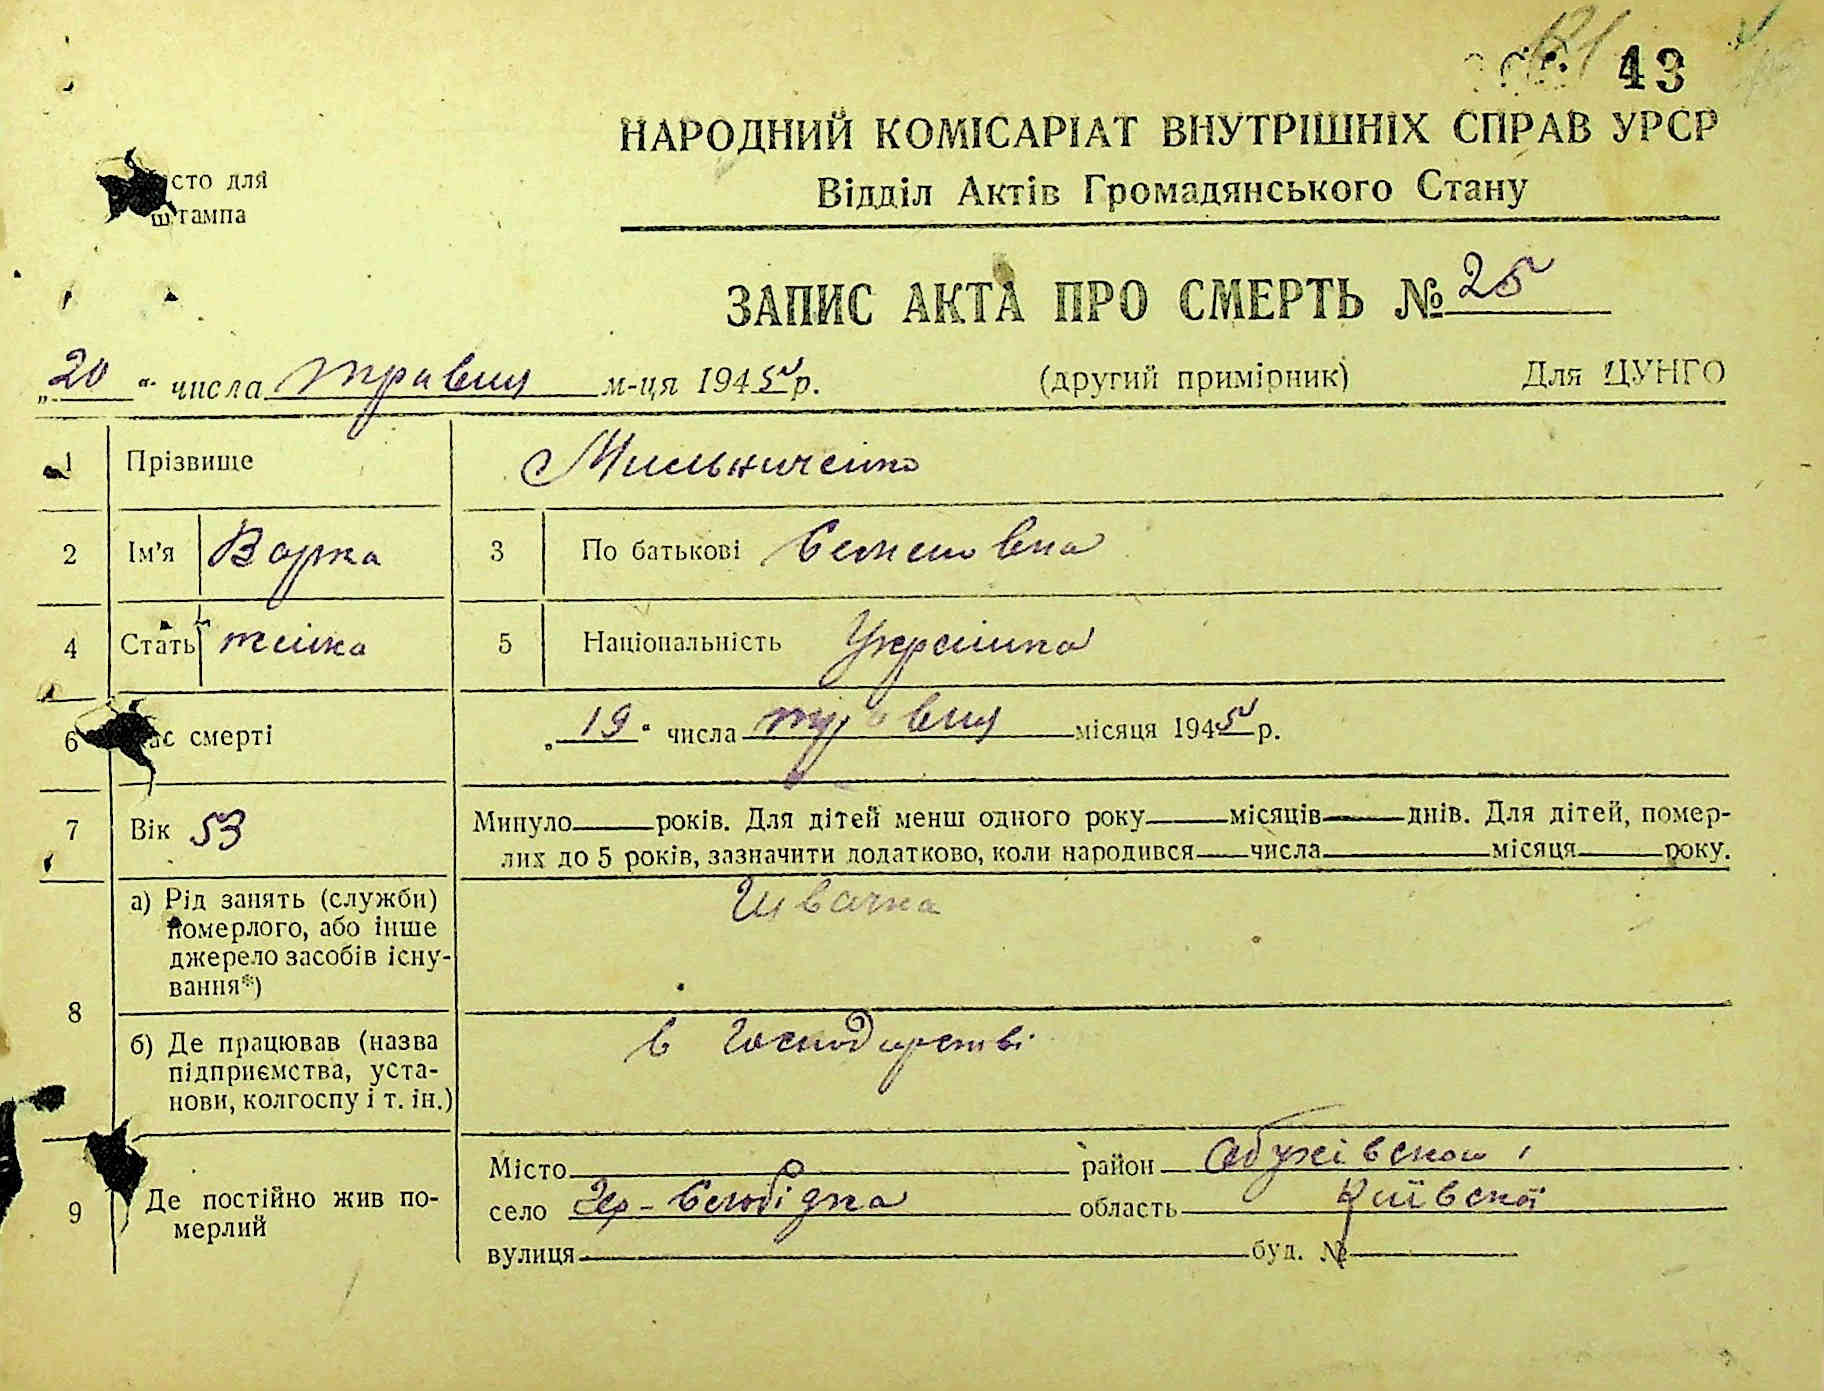 43
НАРОДНИЙ КОМІСАРІАТ ВНУТРІШНІХ СПРАВ УРСР
Відділ Актів Громадянського Стану
сто для
штампа
ЗАПИС АКТА ПРО СМЕРТЬ № 25
„20“ числа травня м-ця 1945 р. (другий примірник) Для ЦУНГО
1 Прізвище Мельниченко
2 Ім'я Варка 3 По батькові Семеновна
4 Стать жінка 5 Національність Українка
6 ас смерті „19“ числа травня місяця 1945 р.
7 Вік 53 Минуло років. Для дітей менш одного року місяців днів. Для дітей, помер-
лих до 5 років, зазначити додатково, коли народився числа місяця року.
8 а) Рід занять (служби) Швачка
померлого, або інше
джерело засобів існу-
вання*)
б) Де працював (назва в господарстві
підприємства, уста-
нови, колгоспу і т. ін.)
9 Де постійно жив по-
мерлий
Місто район Обухівского
село Чер-Слобідка область Київскої
вулиця буд. №